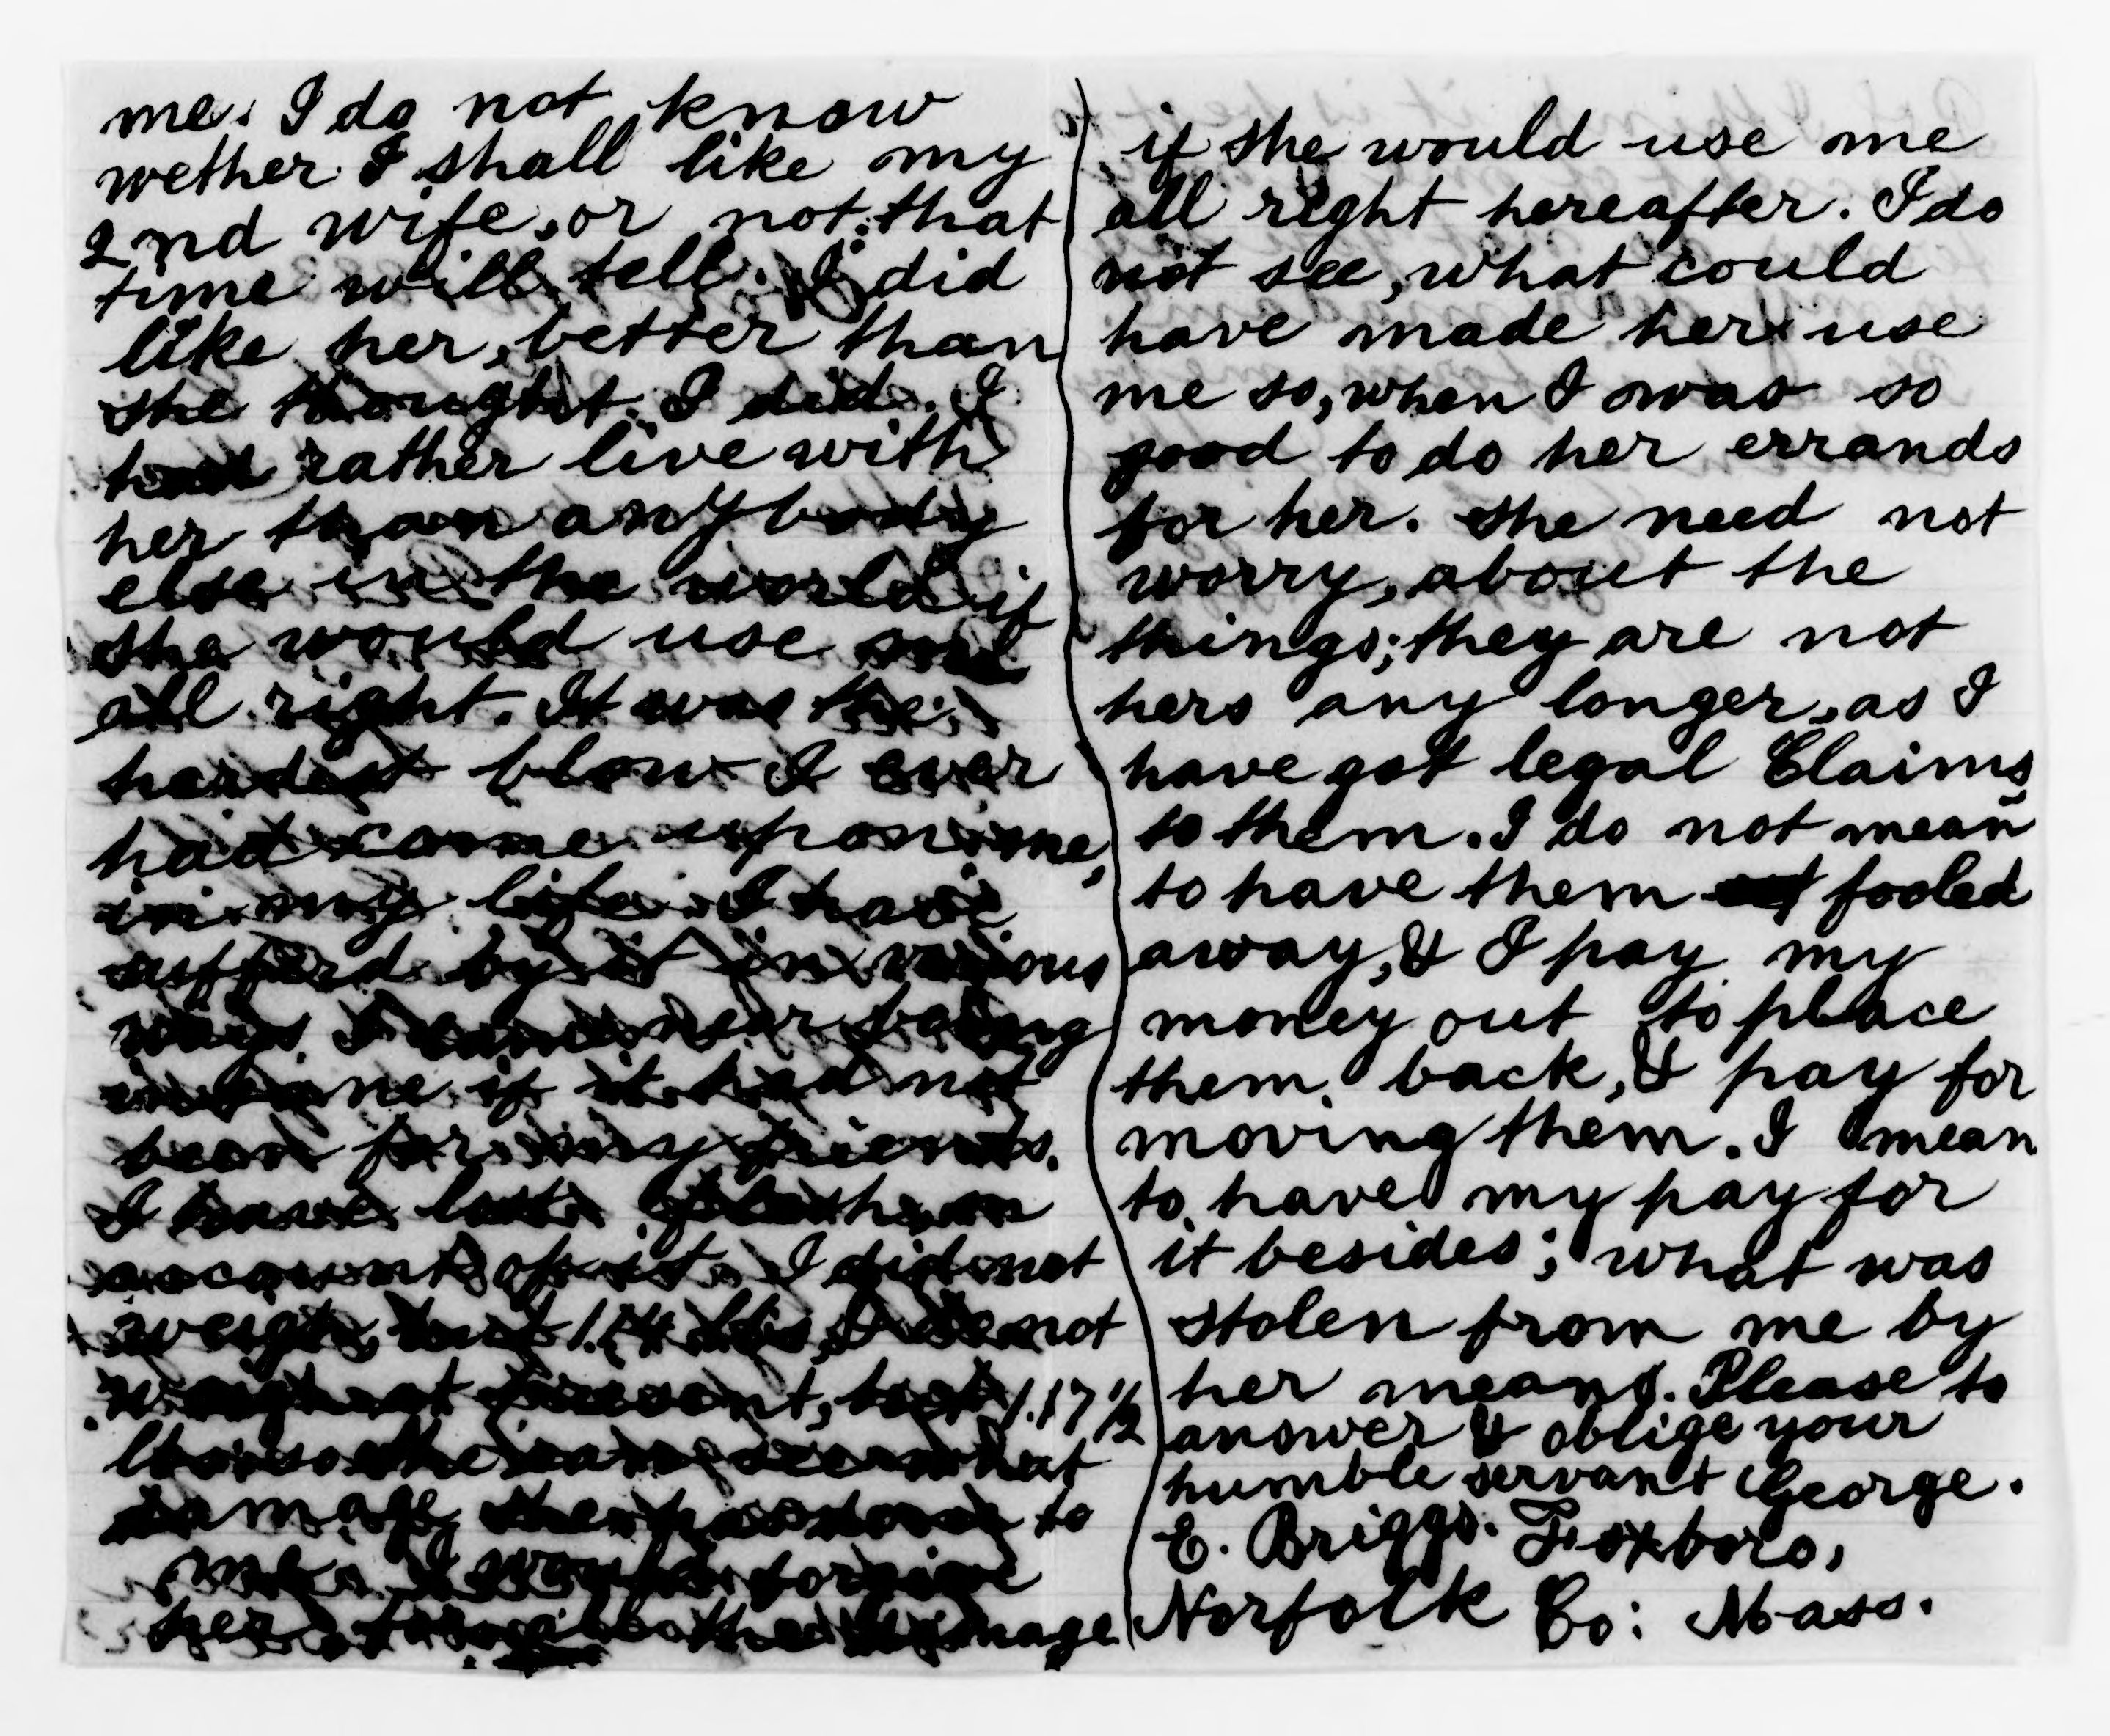 me. I do not know
wether I shall like my
2nd wife, or not, that
time will tell. I did
like her, better than
she thought I did. I
had rather live with
her than anybody
else in the world if
she would use me
all right. It was the
hardest blow I ever
had come upon me,
in my life. I have
sufferd by it in various
ways. I came near being
insane if it had not
been for my friends.
I have lost flesh on
account of it. I did not
weigh, but 1.14 lbs, I do not
weigh at present, but 1.17 1/2
lbs. so she can see what
damage she has done to
me. I would forgive
her, for all the damage
if she would use me
all right hereafter. I do
not see, what could
have made her use
me so, when I was so
good to do her errands
for her. She need not
worry, about the
things; they are not
hers any longer, as I
have got legal Claims
to them. I do not mean
to have them fooled
away, & I pay my
money out to place
them back, & pay for
moving them. I mean
to have my pay for
it besides; what was
stolen from me by
her means. Please to
answer & oblige your
humble servant George.
E. Briggs. Foxboro,
Norfolk Co: Mass.